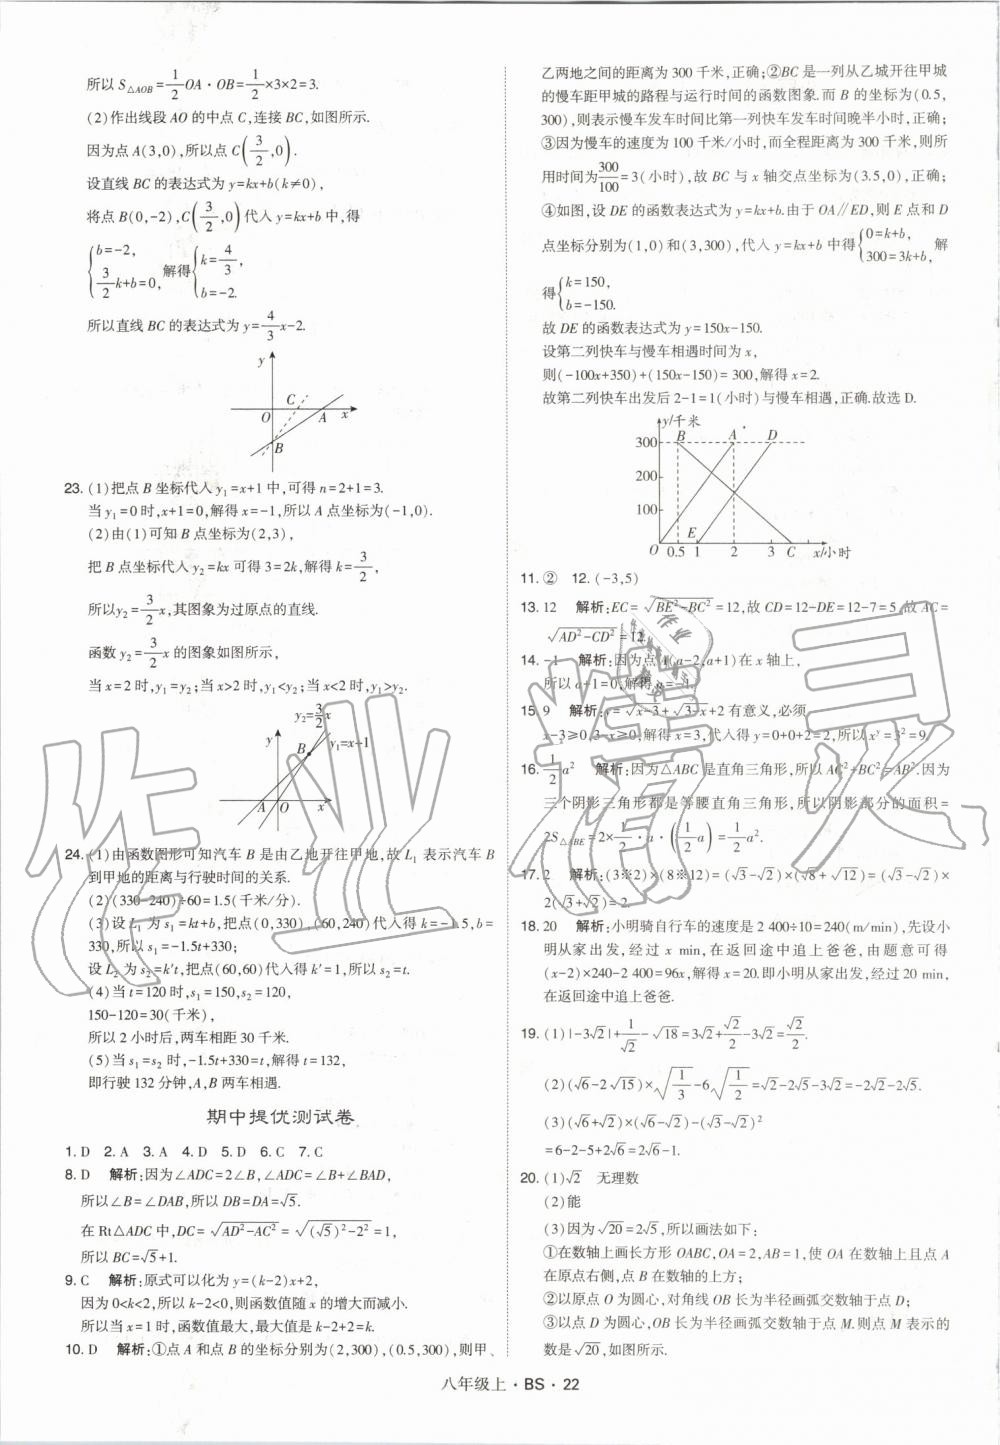 所以 S△AOB = 1/2 OA·OB = 1/2 ×3×2=3.
(2)作出线段 AO 的中点 C,连接 BC,如图所示.
因为点 A(3,0),所以点 C(3/2,0).
设直线 BC 的表达式为 y=kx+b(k≠0),
将点 B(0,-2),C(3/2,0)代入 y=kx+b 中,得
{b=-2, 3/2 k+b=0, 解得 {k=4/3, b=-2.
所以直线 BC 的表达式为 y=4/3 x-2.
y
C
O A x
B
23. (1)把点 B 坐标代入 y₁=x+1 中,可得 n=2+1=3.
当 y₁=0 时,x+1=0,解得 x=-1,所以 A 点坐标为(-1,0).
(2)由(1)可知 B 点坐标为(2,3),
把 B 点坐标代入 y₂=kx 可得 3=2k,解得 k=3/2,
所以 y₂=3/2 x,其图象为过原点的直线.
函数 y₂=3/2 x 的图象如图所示,
当 x=2 时,y₁=y₂;当 x>2 时,y₁<y₂;当 x<2 时,y₁>y₂.
y₂=3/2 x
y B y₁=x+1
A O x
24. (1)由函数图形可知汽车 B 是由乙地开往甲地,故 L₁ 表示汽车 B
到甲地的距离与行驶时间的关系.
(2)(330-240)÷60=1.5(千米/分).
(3)设 L₁ 为 s₁=kt+b,把点(0,330),(60,240)代入得 k=-1.5,b=
330,所以 s₁=-1.5t+330;
设 L₂ 为 s₂=k't,把点(60,60)代入得 k'=1,所以 s₂=t.
(4)当 t=120 时,s₁=150,s₂=120,
150-120=30(千米),
所以 2 小时后,两车相距 30 千米.
(5)当 s₁=s₂ 时,-1.5t+330=t,解得 t=132.
即行驶 132 分钟,A,B 两车相遇.
期中提优测试卷
1. D 2. A 3. A 4. D 5. D 6. C 7. C
8. D 解析:因为∠ADC=2∠B,∠ADC=∠B+∠BAD,
所以∠B=∠DAB,所以 DB=DA=√5.
在 Rt△ADC 中,DC=√(AD²-AC²)=√((√5)²-2²)=1,
所以 BC=√5+1.
9. C 解析:原式可以化为 y=(k-2)x+2,
因为 0<k<2,所以 k-2<0,则函数值随 x 的增大而减小.
所以当 x=1 时,函数值最大,最大值是 k-2+2=k.
10. D 解析:①点 A 和点 B 的坐标分别为(2,300),(0.5,300),则甲、
乙两地之间的距离为 300 千米,正确;②BC 是一列从乙城开往甲城
的慢车距甲城的路程与运行时间的函数图象.而 B 的坐标为(0.5,
300),则表示慢车发车时间比第一列快车发车时间晚半小时,正确;
③因为慢车的速度为 100 千米/小时,而全程距离为 300 千米,则所
用时间为 300/100=3(小时),故 BC 与 x 轴交点坐标为(3.5,0),正确;
④如图,设 DE 的函数表达式为 y=kx+b.由于 OA∥ED,则 E 点和 D
点坐标分别为(1,0)和(3,300),代入 y=kx+b 中得{0=k+b, 300=3k+b, 解
得{k=150, b=-150.
故 DE 的函数表达式为 y=150x-150.
设第二列快车与慢车相遇时间为 x,
则(-100x+350)+(150x-150)=300,解得 x=2.
故第二列快车出发后 2-1=1(小时)与慢车相遇,正确.故选 D.
y/千米
300 B A D
200
100
E
O 0.5 1 2 3 C x/小时
11. ② 12. (-3,5)
13. 12 解析:EC=√(BE²-BC²)=12,故 CD=12-DE=12-7=5,故 AC=
√(AD²-CD²)=12.
14. -1 解析:因为点 A(a-2,a+1)在 x 轴上,
所以 a+1=0,解得 a=-1.
15. 9 解析:y=√(x-3)+√(3-x)+2 有意义,必须
x-3≥0,3-x≥0,解得 x=3,代入得 y=0+0+2=2,所以 xʸ=3²=9.
16. 1/2 a² 解析:因为△ABC 是直角三角形,所以 AC²+BC²=AB².因为
三个阴影三角形都是等腰直角三角形,所以阴影部分的面积=
2S△ABE=2×1/2·a·(1/2 a)=1/2 a².
17. 2 解析:(3※2)×(8※12)=(√3-√2)×(√8+√12)=(√3-√2)×
2(√3+√2)=2.
18. 20 解析:小明骑自行车的速度是 2 400÷10=240(m/min),先设小
明从家出发,经过 x min,在返回途中追上爸爸,由题意可得
(x-2)×240-2 400=96x,解得 x=20.即小明从家出发,经过 20 min,
在返回途中追上爸爸.
19. (1)|-3√2|+1/√2-√18=3√2+√2/2-3√2=√2/2.
(2)(√6-2√15)×√(1/3)-6√(1/2)=√2-2√5-3√2=-2√2-2√5.
(3)(√6+√2)×(√6-√2)-(√3-√2)²
=6-2-5+2√6=2√6-1.
20. (1)√2 无理数
(2)能
(3)因为√20=2√5,所以画法如下:
①在数轴上画长方形 OABC,OA=2,AB=1,使 OA 在数轴上且点 A
在原点右侧,点 B 在数轴的上方;
②以原点 O 为圆心,对角线 OB 长为半径画弧交数轴于点 D;
③以点 D 为圆心,OB 长为半径画弧交数轴于点 M.则点 M 表示的
数是√20,如图所示.
八年级上·BS·22